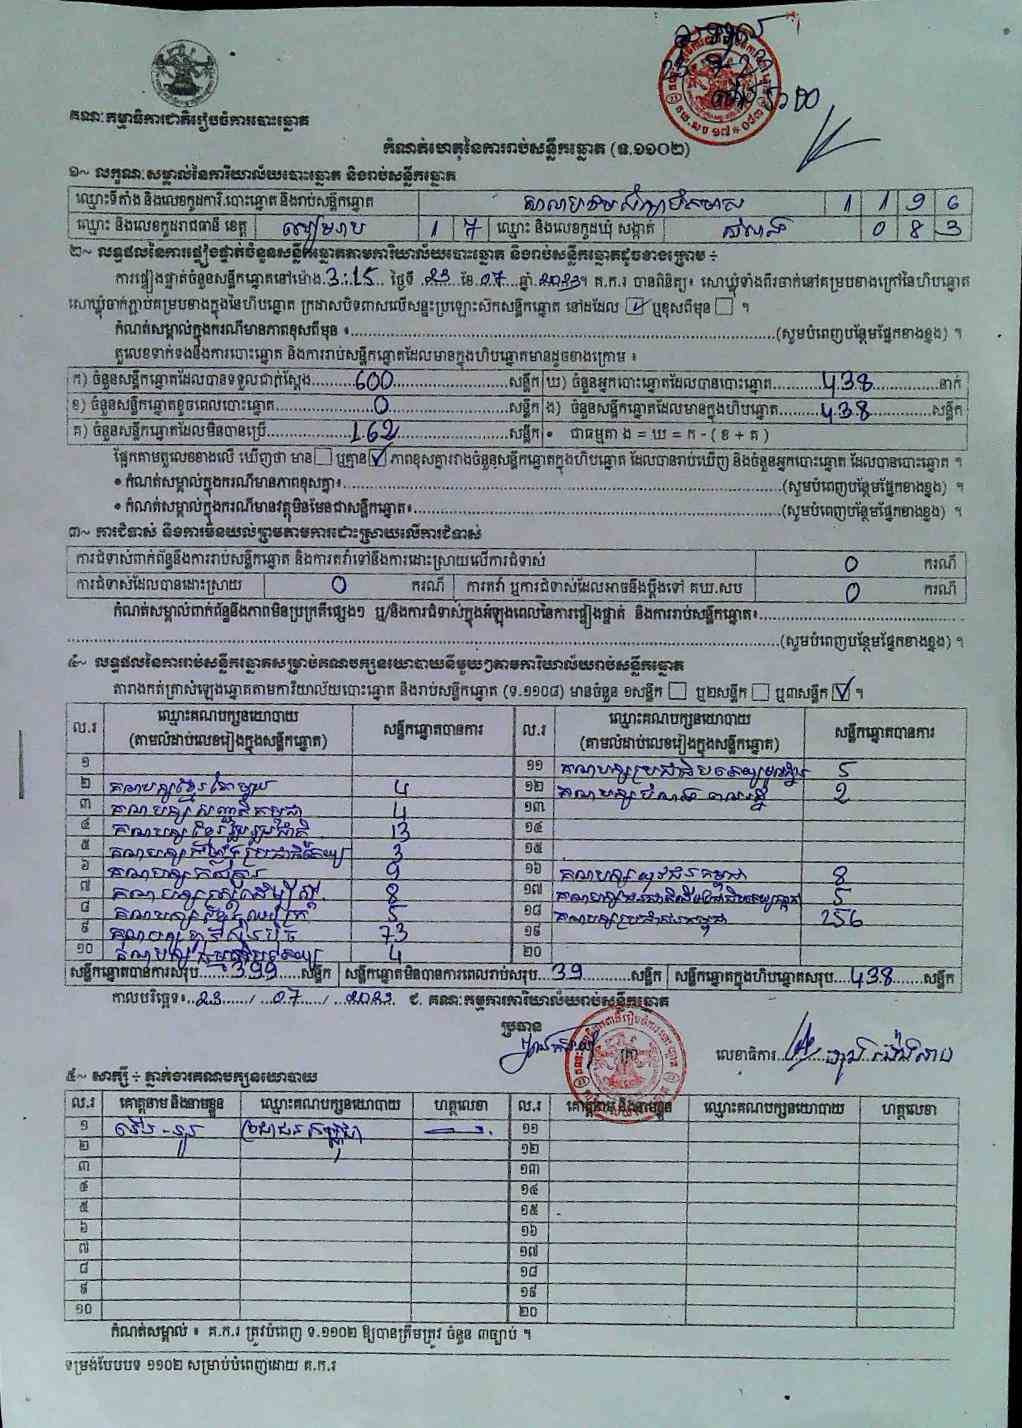 គណៈកម្មាធិការជាតិរៀបចំការបោះឆ្នោត
កំណត់ហេតុនៃការរាប់សន្លឹកឆ្នោត (ទ.១១០២)
១~ លក្ខណៈសម្គាល់នៃការិយាល័យបោះឆ្នោត និងរាប់សន្លឹកឆ្នោត
ឈ្មោះទីតាំង និងលេខកូដការិ.បោះឆ្នោត និងរាប់សន្លឹកឆ្នោត 1 1 9 6
ឈ្មោះ និងលេខកូដរាជធានី ខេត្ត សៀមរាប 1 7 ឈ្មោះ និងលេខកូដឃុំ សង្កាត់ 0 8 3
២~ លទ្ធផលនៃការផ្ទៀងផ្ទាត់ចំនួនសន្លឹកឆ្នោតតាមការិយាល័យបោះឆ្នោត និងរាប់សន្លឹកឆ្នោតដូចខាងក្រោម ៖
ការផ្ទៀងផ្ទាត់ចំនួនសន្លឹកឆ្នោតនៅម៉ោង 3:15 ថ្ងៃទី 23 ខែ 07 ឆ្នាំ 2023។ គ.ក.រ បានពិនិត្យ៖ សោឃ្មុំទាំងពីរចាក់នៅគម្របខាងក្រៅនៃហិបឆ្នោត
សោឃ្មុំចាក់ភ្ជាប់គម្របខាងក្នុងនៃហិបឆ្នោត ក្រដាសបិទពាសលើសន្ទះប្រឡោះស៊កសន្លឹកឆ្នោត នៅដដែល ☑ ឬខុសពីមុន ☐ ។
កំណត់សម្គាល់ក្នុងករណីមានភាពខុសពីមុន ៖ (សូមបំពេញបន្ថែមផ្នែកខាងខ្នង) ។
តួលេខទាក់ទងនឹងការបោះឆ្នោត និងការរាប់សន្លឹកឆ្នោតដែលមានក្នុងហិបឆ្នោតមានដូចខាងក្រោម ៖
ក) ចំនួនសន្លឹកឆ្នោតដែលបានទទួលជាក់ស្តែង 600 សន្លឹក ឃ) ចំនួនអ្នកបោះឆ្នោតដែលបានបោះឆ្នោត 438 នាក់
ខ) ចំនួនសន្លឹកឆ្នោតខូចពេលបោះឆ្នោត 0 សន្លឹក ង) ចំនួនសន្លឹកឆ្នោតដែលមានក្នុងហិបឆ្នោត 438 សន្លឹក
គ) ចំនួនសន្លឹកឆ្នោតដែលមិនបានប្រើ 162 សន្លឹក • ជាធម្មតា ង = ឃ = ក - ( ខ + គ )
ផ្អែកតាមតួលេខខាងលើ ឃើញថា មាន ☐ ឬគ្មាន ☑ ភាពខុសគ្នារវាងចំនួនសន្លឹកឆ្នោតក្នុងហិបឆ្នោត ដែលបានរាប់ឃើញ និងចំនួនអ្នកបោះឆ្នោត ដែលបានបោះឆ្នោត ។
• កំណត់សម្គាល់ក្នុងករណីមានភាពខុសគ្នា៖ (សូមបំពេញបន្ថែមផ្នែកខាងខ្នង) ។
• កំណត់សម្គាល់ក្នុងករណីមានវត្ថុមិនមែនជាសន្លឹកឆ្នោត៖ (សូមបំពេញបន្ថែមផ្នែកខាងខ្នង) ។
៣~ ការជំទាស់ និងការមិនយល់ព្រមតាមការដោះស្រាយលើការជំទាស់
ការជំទាស់ពាក់ព័ន្ធនឹងការរាប់សន្លឹកឆ្នោត និងការតវ៉ាទៅនឹងការដោះស្រាយលើការជំទាស់ 0 ករណី
ការជំទាស់ដែលបានដោះស្រាយ 0 ករណី ការតវ៉ា ឬការជំទាស់ដែលអាចនឹងប្តឹងទៅ គឃ.សប 0 ករណី
កំណត់សម្គាល់ពាក់ព័ន្ធនឹងភាពមិនប្រក្រតីផ្សេងៗ ឬ/និងការជំទាស់ក្នុងអំឡុងពេលនៃការផ្ទៀងផ្ទាត់ និងការរាប់សន្លឹកឆ្នោត៖
(សូមបំពេញបន្ថែមផ្នែកខាងខ្នង) ។
៤~ លទ្ធផលនៃការរាប់សន្លឹកឆ្នោតសម្រាប់គណបក្សនយោបាយនីមួយៗតាមការិយាល័យរាប់សន្លឹកឆ្នោត
តារាងកត់ត្រាសំឡេងឆ្នោតតាមការិយាល័យបោះឆ្នោត និងរាប់សន្លឹកឆ្នោត (ទ.១១០៨) មានចំនួន ១សន្លឹក ☐ ឬ២សន្លឹក ☐ ឬ៣សន្លឹក ☑ ។
ល.រ ឈ្មោះគណបក្សនយោបាយ (តាមលំដាប់លេខរៀងក្នុងសន្លឹកឆ្នោត) សន្លឹកឆ្នោតបានការ ល.រ ឈ្មោះគណបក្សនយោបាយ (តាមលំដាប់លេខរៀងក្នុងសន្លឹកឆ្នោត) សន្លឹកឆ្នោតបានការ
១ ១១ គណបក្សប្រជាធិបតេយ្យមូលដ្ឋាន 5
២ គណបក្សខ្មែរតែមួយ 4 ១២ គណបក្ស 2
៣ គណបក្សសញ្ជាតិកម្ពុជា 4 ១៣
៤ គណបក្សខ្មែររួបរួមជាតិ 13 ១៤
៥ គណបក្ស 3 ១៥
៦ គណបក្សកសិករ 9 ១៦ គណបក្សយុវជនកម្ពុជា 8
៧ គណបក្សស្ត្រីដើម្បីស្ត្រី 8 ១៧ គណបក្ស 5
៨ គណបក្ស 5 ១៨ គណបក្សប្រជាជនកម្ពុជា 256
៩ គណបក្សហ្វ៊ុនស៊ិនប៉ិច 73 ១៩
១០ គណបក្ស 4 ២០
សន្លឹកឆ្នោតបានការសរុប 399 សន្លឹក សន្លឹកឆ្នោតមិនបានការពេលរាប់សរុប 39 សន្លឹក សន្លឹកឆ្នោតក្នុងហិបឆ្នោតសរុប 438 សន្លឹក
កាលបរិច្ឆេទ៖ 23 / 07 / 2023 ជ. គណៈកម្មការការិយាល័យរាប់សន្លឹកឆ្នោត
ប្រធាន
លេខាធិការ
៥~ សាក្សី ៖ ភ្នាក់ងារគណបក្សនយោបាយ
ល.រ គោត្តនាម និងនាមខ្លួន ឈ្មោះគណបក្សនយោបាយ ហត្ថលេខា ល.រ គោត្តនាម និងនាមខ្លួន ឈ្មោះគណបក្សនយោបាយ ហត្ថលេខា
១ ប្រជាជនកម្ពុជា ១១
២ ១២
៣ ១៣
៤ ១៤
៥ ១៥
៦ ១៦
៧ ១៧
៨ ១៨
៩ ១៩
១០ ២០
កំណត់សម្គាល់ ៖ គ.ក.រ ត្រូវបំពេញ ទ.១១០២ ឱ្យបានត្រឹមត្រូវ ចំនួន ៣ច្បាប់ ។
ទម្រង់បែបបទ ១១០២ សម្រាប់បំពេញដោយ គ.ក.រ